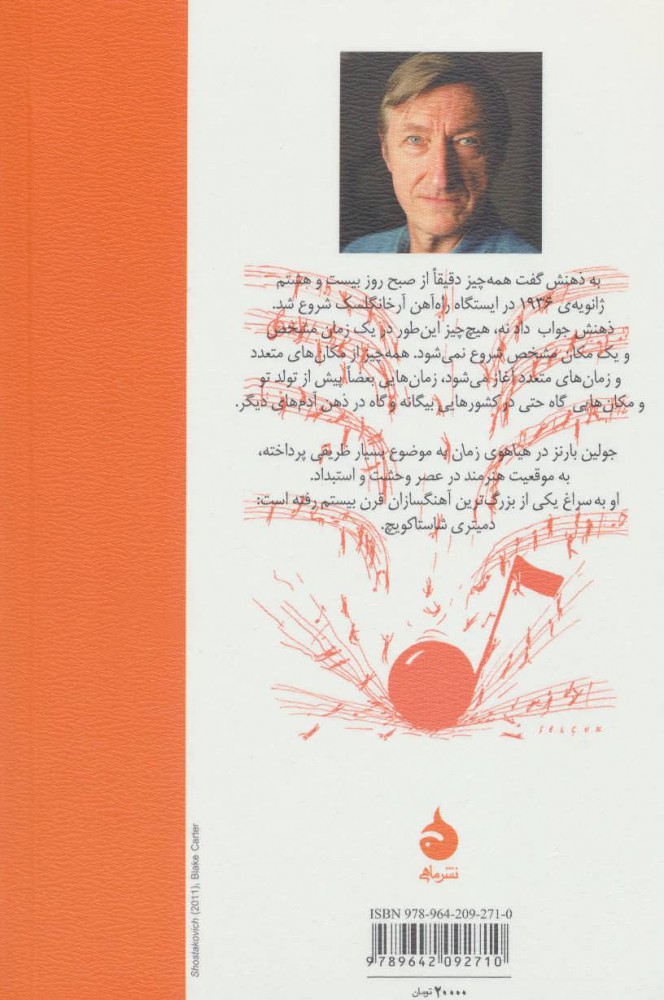 به ذهنش گفت همه‌چیز دقیقاً از صبح روز بیست و هشتم
ژانویه‌ی ۱۹۳۶ در ایستگاه راه‌آهن آرخانگلسک شروع شد.
ذهنش جواب داد نه، هیچ‌چیز این‌طور در یک زمان مشخص
و یک مکان مشخص شروع نمی‌شود. همه‌چیز از مکان‌های متعدد
و زمان‌های متعدد آغاز می‌شود، زمان‌هایی بعضاً پیش از تولد تو
و مکان‌هایی گاه حتی در کشورهایی بیگانه و گاه در ذهن آدم‌های دیگر.
جولین بارنز در هیاهوی زمان به موضوع بسیار ظریفی پرداخته،
به موقعیت هنرمند در عصر وحشت و استبداد.
او به سراغ یکی از بزرگ‌ترین آهنگسازان قرن بیستم رفته است:
دمیتری شاستاکویچ.
SELÇUK
Shostakovich (2011), Blake Carter
نشرماهی
ISBN 978-964-209-271-0
9 789642 092710
۲۰۰۰۰ تومان